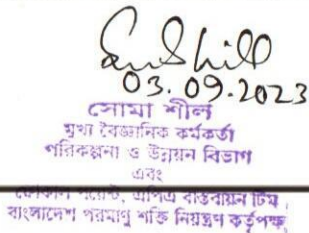 03.09.2023
সোমা শীল
মুখ্য বৈজ্ঞানিক কর্মকর্তা
পরিকল্পনা ও উন্নয়ন বিভাগ
এবং
ফোকাল পয়েন্ট, এপিএ বাস্তবায়ন টিম
বাংলাদেশ পরমাণু শক্তি নিয়ন্ত্রণ কর্তৃপক্ষ